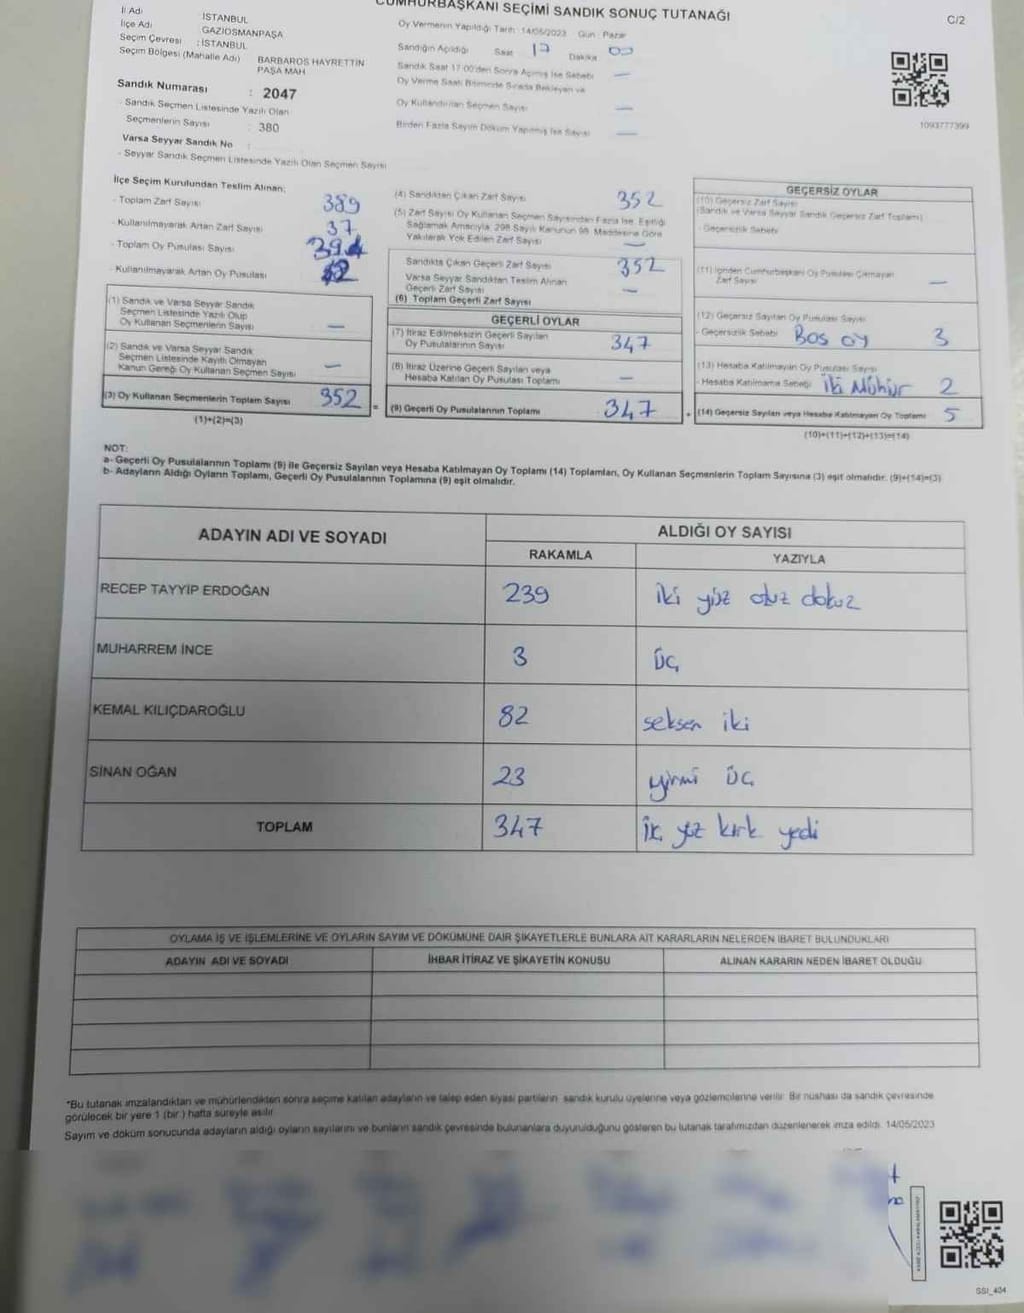 CUMHURBAŞKANI SEÇİMİ SANDIK SONUÇ TUTANAĞI
C/2
İl Adı İSTANBUL
İlçe Adı GAZİOSMANPAŞA
Seçim Çevresi : İSTANBUL
Seçim Bölgesi (Mahalle Adı) BARBAROS HAYRETTİN
PAŞA MAH
Sandık Numarası : 2047
- Sandık Seçmen Listesinde Yazılı Olan
Seçmenlerin Sayısı : 380
Varsa Seyyar Sandık No :
- Seyyar Sandık Seçmen Listesinde Yazılı Olan Seçmen Sayısı
Oy Vermenin Yapıldığı Tarih : 14/05/2023 Gün : Pazar
Sandığın Açıldığı Saat 17 Dakika 00
Sandık Saat 17:00'den Sonra Açılmış İse Sebebi —
Oy Verme Saati Bitiminde Sırada Bekleyen ve
Oy Kullandırılan Seçmen Sayısı —
Birden Fazla Sayım Döküm Yapılmış İse Sayısı —
1093777399
İlçe Seçim Kurulundan Teslim Alınan;
- Toplam Zarf Sayısı 389
- Kullanılmayarak Artan Zarf Sayısı 37
- Toplam Oy Pusulası Sayısı
- Kullanılmayarak Artan Oy Pusulası
(1) Sandık ve Varsa Seyyar Sandık
Seçmen Listesinde Yazılı Olup
Oy Kullanan Seçmenlerin Sayısı —
(2) Sandık ve Varsa Seyyar Sandık
Seçmen Listesinde Kayıtlı Olmayan
Kanun Gereği Oy Kullanan Seçmen Sayısı —
(3) Oy Kullanan Seçmenlerin Toplam Sayısı 352
(1)+(2)=(3)
(4) Sandıktan Çıkan Zarf Sayısı 352
(5) Zarf Sayısı Oy Kullanan Seçmen Sayısından Fazla İse, Eşitliği
Sağlamak Amacıyla, 298 Sayılı Kanunun 98. Maddesine Göre
Yakılarak Yok Edilen Zarf Sayısı —
Sandıkta Çıkan Geçerli Zarf Sayısı 352
Varsa Seyyar Sandıktan Teslim Alınan
Geçerli Zarf Sayısı —
(6) Toplam Geçerli Zarf Sayısı
GEÇERLİ OYLAR
(7) İtiraz Edilmeksizin Geçerli Sayılan
Oy Pusulalarının Sayısı 347
(8) İtiraz Üzerine Geçerli Sayılan veya
Hesaba Katılan Oy Pusulası Toplamı —
= (9) Geçerli Oy Pusulalarının Toplamı 347
GEÇERSİZ OYLAR
(10) Geçersiz Zarf Sayısı
(Sandık ve Varsa Seyyar Sandık Geçersiz Zarf Toplamı)
- Geçersizlik Sebebi
(11) İçinden Cumhurbaşkanı Oy Pusulası Çıkmayan
Zarf Sayısı —
(12) Geçersiz Sayılan Oy Pusulası Sayısı
- Geçersizlik Sebebi Boş oy 3
(13) Hesaba Katılmayan Oy Pusulası Sayısı
- Hesaba Katılmama Sebebi İki Mühür 2
+ (14) Geçersiz Sayılan veya Hesaba Katılmayan Oy Toplamı 5
(10)+(11)+(12)+(13)=(14)
NOT:
a- Geçerli Oy Pusulalarının Toplamı (9) ile Geçersiz Sayılan veya Hesaba Katılmayan Oy Toplamı (14) Toplamları, Oy Kullanan Seçmenlerin Toplam Sayısına (3) eşit olmalıdır. (9)+(14)=(3)
b- Adayların Aldığı Oyların Toplamı, Geçerli Oy Pusulalarının Toplamına (9) eşit olmalıdır.
ADAYIN ADI VE SOYADI ALDIĞI OY SAYISI
RAKAMLA YAZIYLA
RECEP TAYYİP ERDOĞAN 239 iki yüz otuz dokuz
MUHARREM İNCE 3 üç
KEMAL KILIÇDAROĞLU 82 seksen iki
SİNAN OĞAN 23 yirmi üç
TOPLAM 347 yüz kırk yedi
OYLAMA İŞ VE İŞLEMLERİNE VE OYLARIN SAYIM VE DÖKÜMÜNE DAİR ŞİKAYETLERLE BUNLARA AİT KARARLARIN NELERDEN İBARET BULUNDUKLARI
ADAYIN ADI VE SOYADI İHBAR İTİRAZ VE ŞİKAYETİN KONUSU ALINAN KARARIN NEDEN İBARET OLDUĞU
*Bu tutanak imzalandıktan ve mühürlendikten sonra seçime katılan adayların ve talep eden siyasi partilerin sandık kurulu üyelerine veya gözlemcilerine verilir. Bir nüshası da sandık çevresinde
görülecek bir yere 1 (bir ) hafta süreyle asılır.
Sayım ve döküm sonucunda adayların aldığı oyların sayılarını ve bunların sandık çevresinde bulunanlara duyurulduğunu gösteren bu tutanak tarafımızdan düzenlenerek imza edildi. 14/05/2023
SSI_404